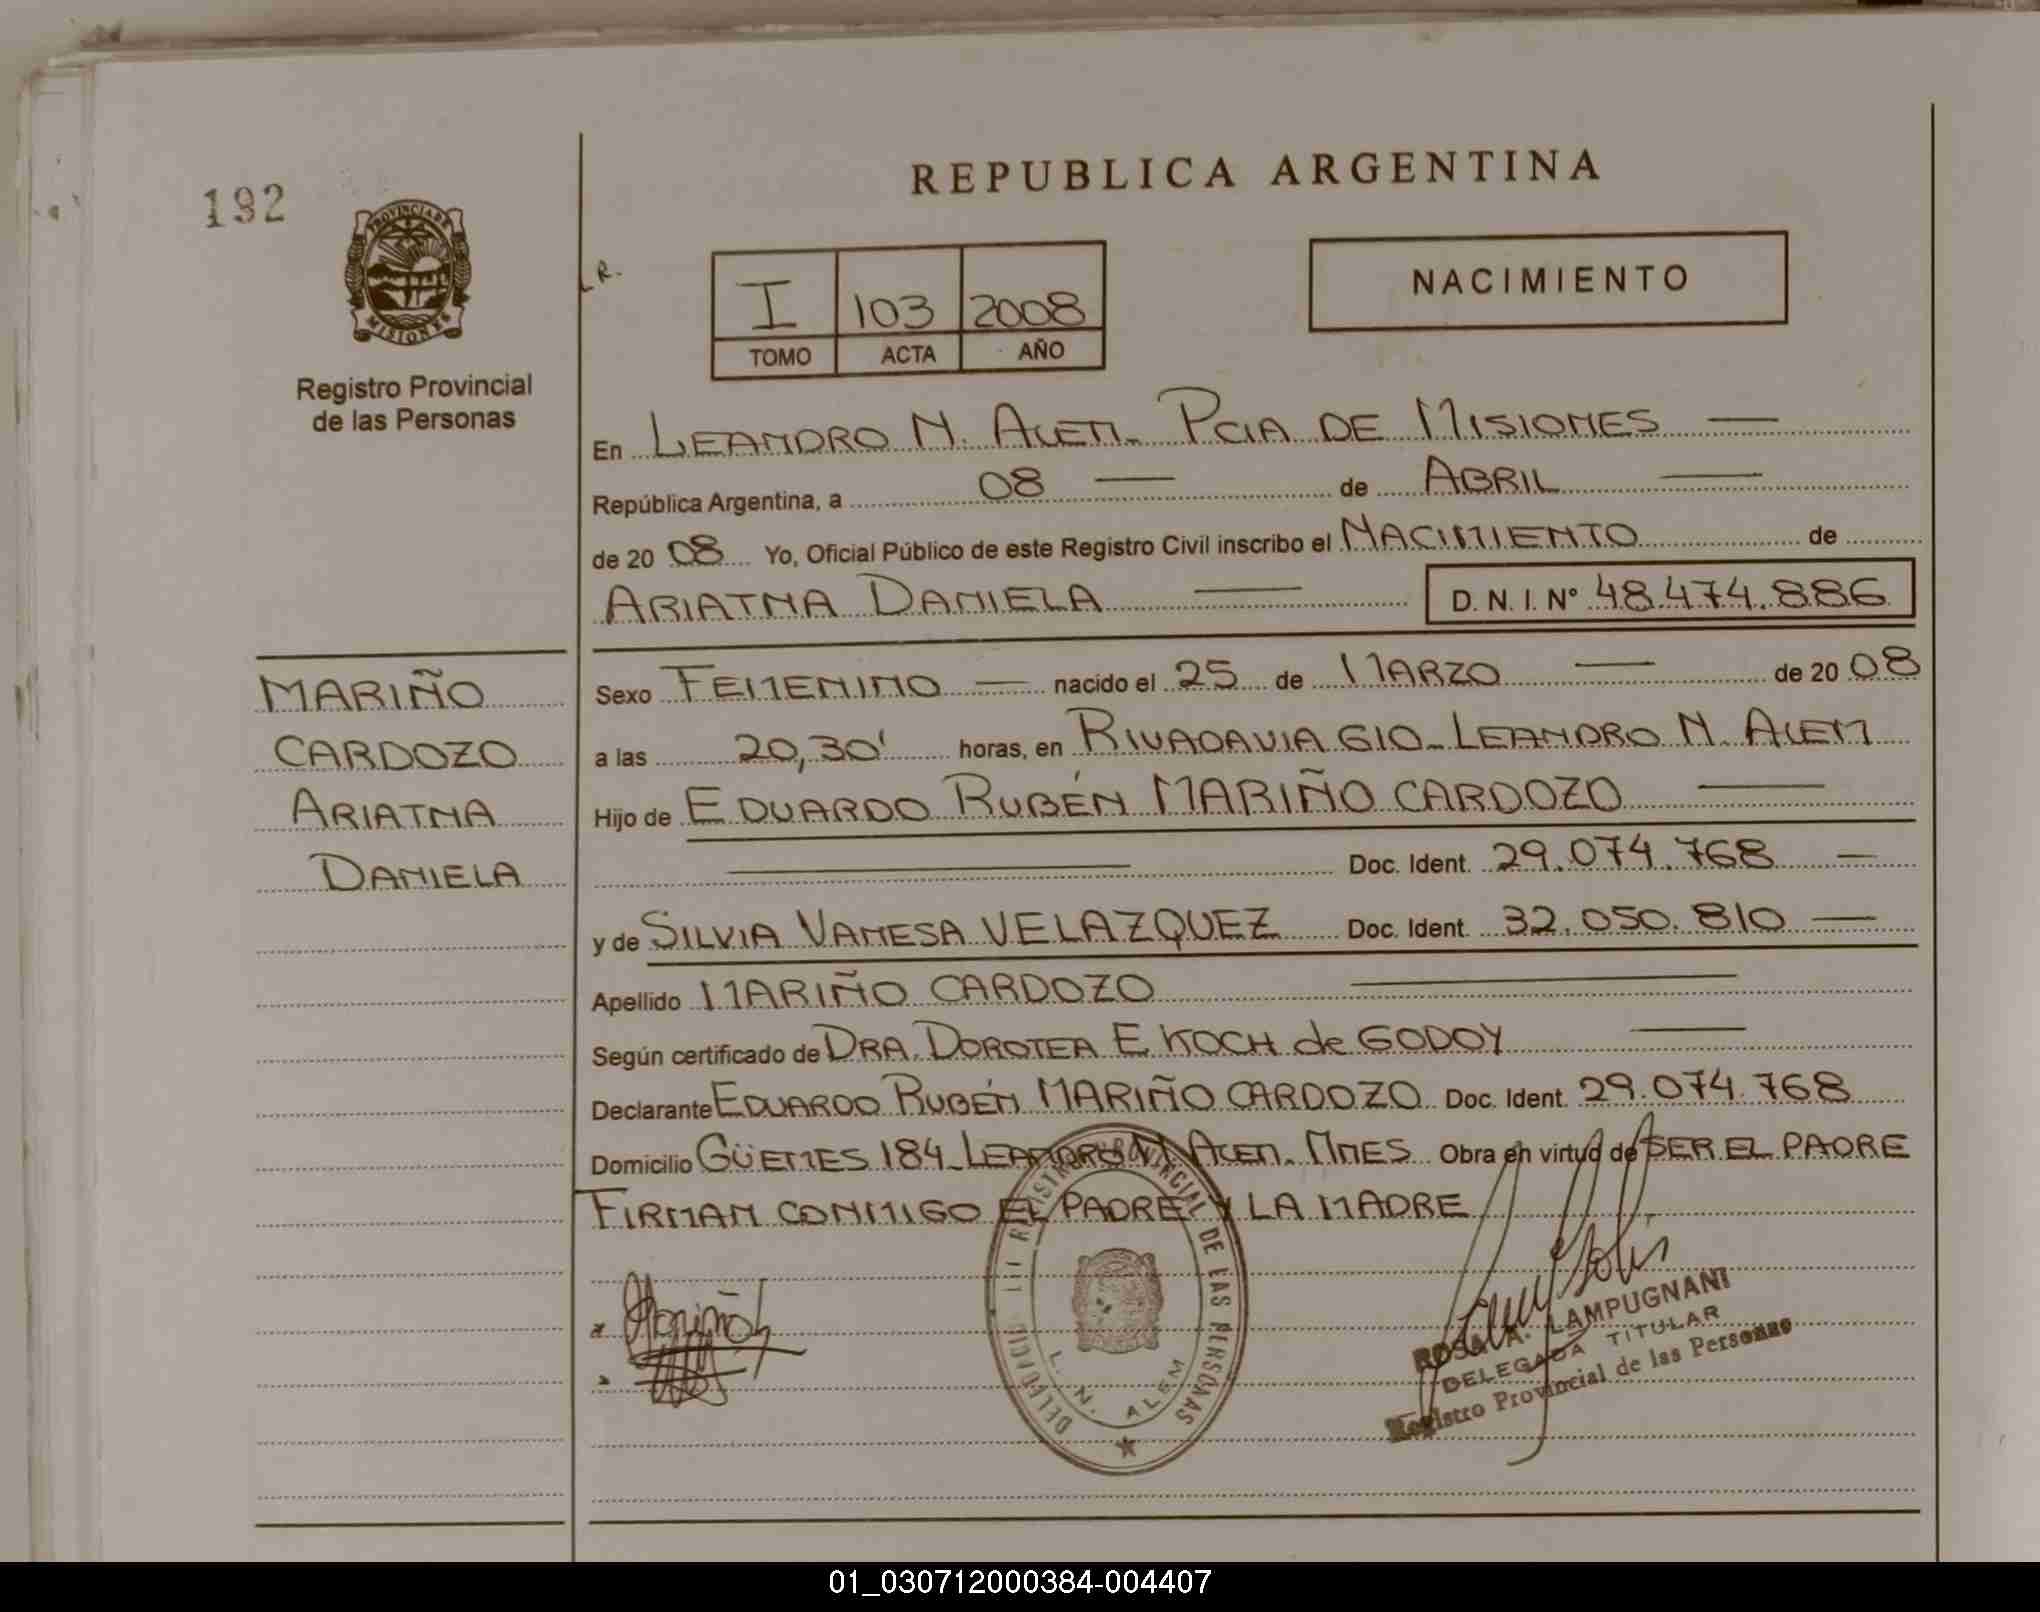 192
PROVINCIA DE
MISIONES
Registro Provincial
de las Personas
REPUBLICA ARGENTINA
L.R.
I 103 2008
TOMO ACTA AÑO
NACIMIENTO
En LEANDRO N. ALEM. PCIA DE MISIONES
República Argentina, a 08 de ABRIL
de 20 08 Yo, Oficial Público de este Registro Civil inscribo el NACIMIENTO de
ARIATNA DANIELA D. N. I. Nº 48.474.886
MARIÑO
CARDOZO
ARIATNA
DANIELA
Sexo FEMENINO nacido el 25 de MARZO de 20 08
a las 20,30' horas, en RIVADAVIA 610_LEANDRO N. ALEM
Hijo de EDUARDO RUBÉN MARIÑO CARDOZO
Doc. Ident. 29.074.768
y de SILVIA VANESA VELAZQUEZ Doc. Ident. 32.050.810
Apellido MARIÑO CARDOZO
Según certificado de DRA. DOROTEA E. KOCH de GODOY
Declarante EDUARDO RUBÉN MARIÑO CARDOZO Doc. Ident. 29.074.768
Domicilio GÜEMES 184_LEANDRO N. ALEM. MNES Obra en virtud de SER EL PADRE
FIRMAN CONMIGO EL PADRE Y LA MADRE
DELEGACIÓN REGISTRO PROVINCIAL DE LAS PERSONAS
L. N. ALEM
ROSA A. LAMPUGNANI
DELEGADA TITULAR
Registro Provincial de las Personas
01_030712000384-004407